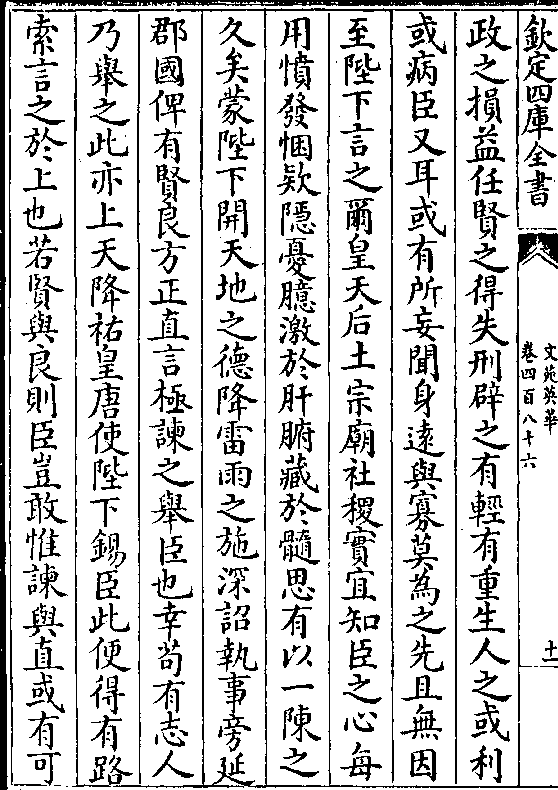 欽定四庫全書
文苑英華
卷四百八十六
十一
政之損益任賢之得失刑辟之有輕有重生人之或利
或病臣又耳或有所妄聞身遠與寡莫為之先且無因
至陛下言之爾皇天后土宗廟社稷實宜知臣之心每
用憤發悃欵隱憂臆激於肝腑藏於髓思有以一陳之
久矣蒙陛下開天地之德降雷雨之施深詔執事旁延
郡國俾有賢良方正直言極諫之舉臣也幸苟有志人
乃舉之此亦上天降祐皇唐使陛下錫臣此便得有路
索言之於上也若賢與良則臣豈敢惟諫與直或有可